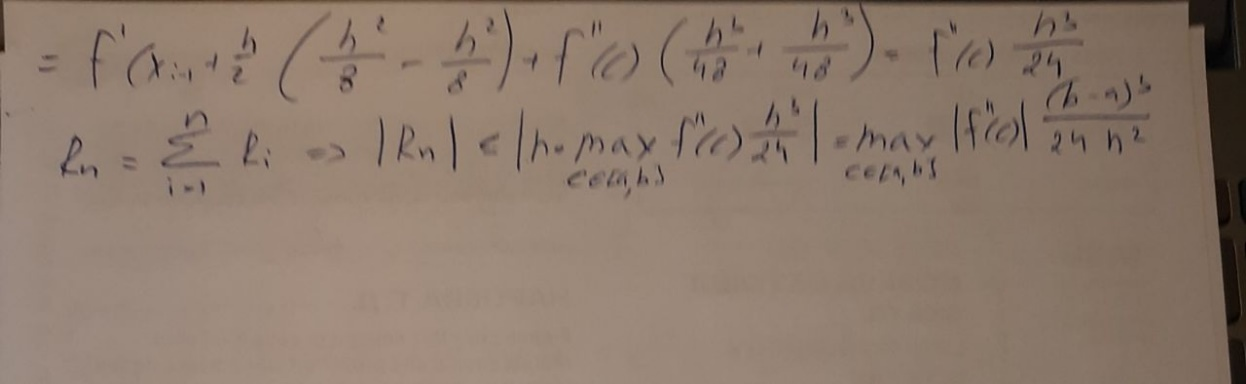 = f'(x_{i-1} + \frac{h}{2} ( \frac{h^2}{8} - \frac{h^2}{8} ) + f''(c) ( \frac{h^3}{48} + \frac{h^3}{48} ) = f''(c) \frac{h^3}{24}
R_n = \sum_{i=1}^{n} R_i => |R_n| < | n \cdot \max_{c∈[a,b]} f''(c) \frac{h^3}{24} | = \max_{c∈[a,b]} |f''(c)| \frac{(b-a)^3}{24 n^2}